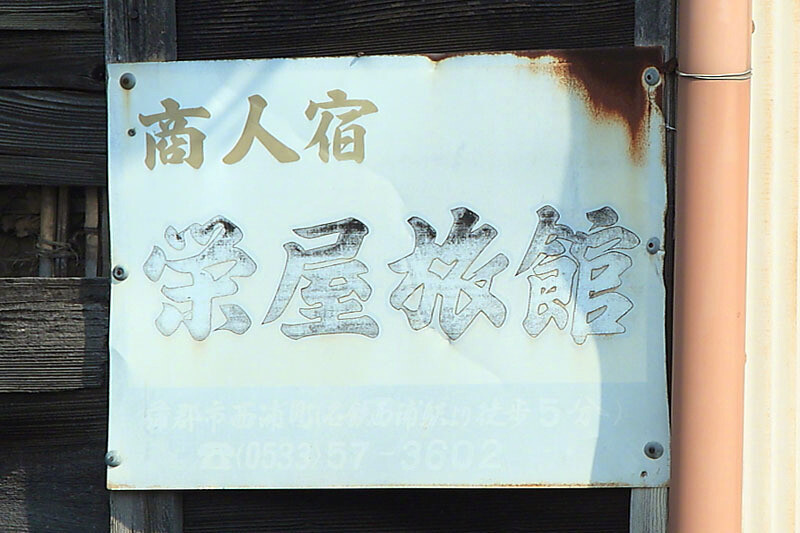 商人宿
栄屋旅館
蒲郡市西浦町(名鉄西浦駅より徒歩5分)
☎(0533)57-3602